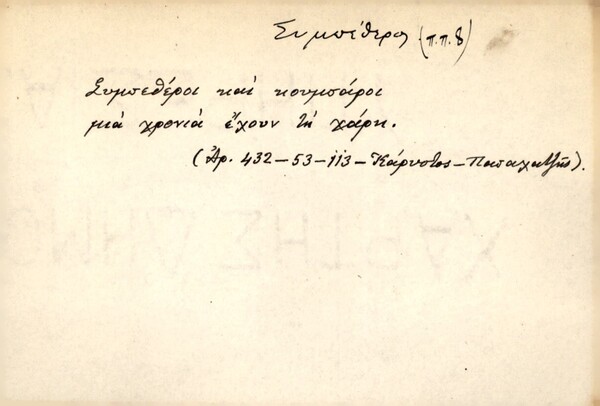 Συμπέθερος (π.π. 8)
Συμπεθέροι καὶ κουμπάροι
μιά χρονιά ἔχουν τή χάρη.
(Ἀρ. 432-53-113-Κάρυστος-Παπαχατζῆς).